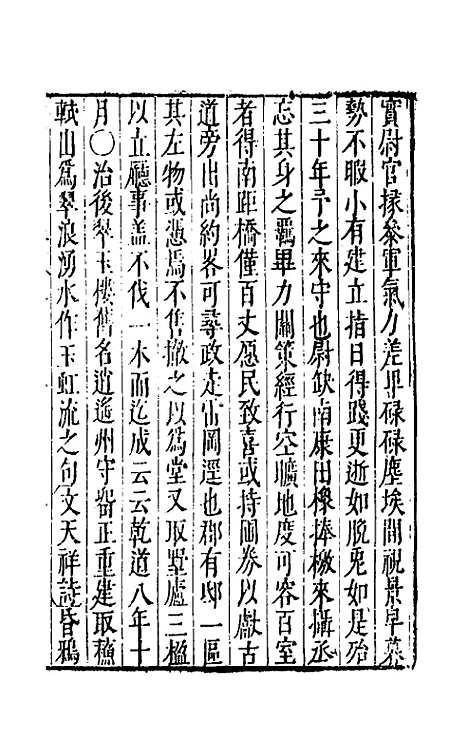 實尉官掾叅軍氣力差早碌碌塵埃間視景早暮
勢不暇小有建立指日得踐更逝如脫兎如是殆
三十年予之來守也尉缺南康田橡捧檄來攝丞
忘其身之羈畢力關策經行空曠地度可容百室
者得南距橋僅百丈愿民致喜或持圃券以獻古
道旁出尚約畧可尋政走雷岡逕也郡有邸一區
其左物或慿焉不售撤之以爲堂又取墅廬三楹
以立廳事盖不伐一木而迄成云云乾道八年十
月〇治後翠玉樓舊名逍遙州守留正重建取蘓
軾山爲翠浪湧水作玉虹流之句文天祥詩昏鴉